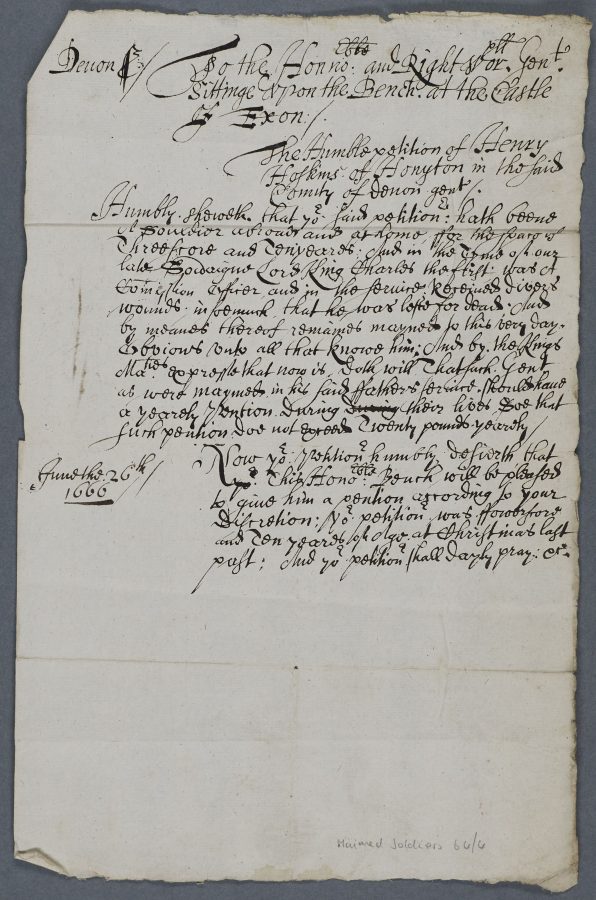 Devon ss:/ To the Honno:ble and Right Worpll Gent
Sittinge Upon the Bench at the Castle
of Exon:/.
The Humble petition of Henry
Hoskins of Honyton in the said
County of devon gent:/.
Humbly sheweth that yor said petitionr: hath beene
A Souldier abroad and at home ffor the space of
Threescore and Ten yeares: And in the Tyme of our
late Soveraigne Lord King Charles the first was A
Comission Officer and in the service Received divers
wounds: in soemuch that he was lefte for dead: And
by meanes thereof remaines maymed to this very day.
Obvious unto all that knowe him: And by the Kings
Maties expresse that now is, doth will That such Gent
as were maymed in his said ffathers service should have
a yearely Pention during during their lives Soe that
such pention doe not exceed Twenty pounds yearely/
June the: 26th/
1666
Now yor: Petitionr humbly desireth that
This Honoble Bench will be pleased
to give him a pention according to your
discretion: Yor petitionr was ffowerscore
and Ten yeares of Age at Christmas last
past: And yor petitionr shall dayly pray: &c
Maimed Soldiers 64/4